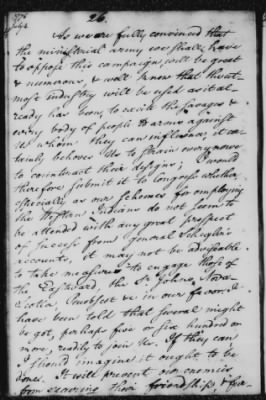 1776
July 4
26.
As we are fully convinced that
the ministerial army we shall have
to oppose this campaign, will be great
& numerous, & well know that the ut-
most industry will be used as it al-
ready has been, to excite the savages &
every body of people to arms against
us whom they can influence, it cer-
tainly behoves us to strain every nerve
to counteract their designs; I would
therefore submit it to Congress whether,
especially as our schemes for employing
the Western Indians do not seem to
be attended with any great prospect
of success from General Schuyler's
accounts, it may not be adviseable
to take measures to engage those of
the Eastward, the St Johns, Nova
Scotia, Penobscot &c in our favor. I
have been told that several might
be got, perhaps five or six hundred or
more, readily to join us. If they can
I should imagine it ought to be
done. It will prevent our enemies
from securing their friendship, &